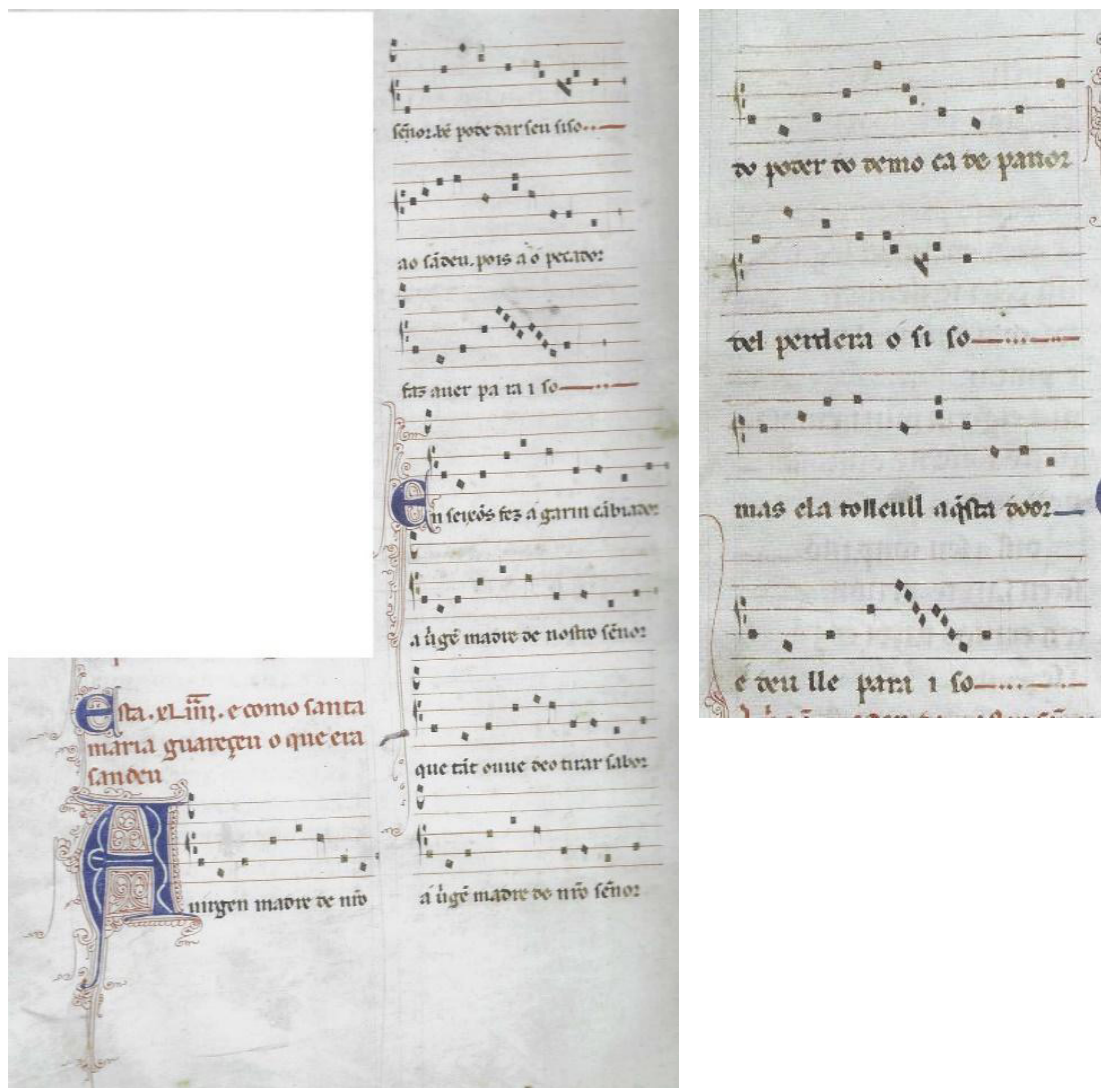 Esta .xLiiii. e como santa
maria guareçeu o que era
sandeu
A uirgen madre de nr̃o
señor. bẽ pode dar seu siso
ao sãdeu. pois a o pecador
faz auer pa ra i so
En seixõs fez a garin cãbiador
a uigẽ madre de nostro señor
que tãt ouue deo tirar sabor
a uigẽ madre de nr̃o señor
do poder do demo ca de pauor
del perdera o si so
mas ela tolleull aq̃sta door
e deu lle para i so